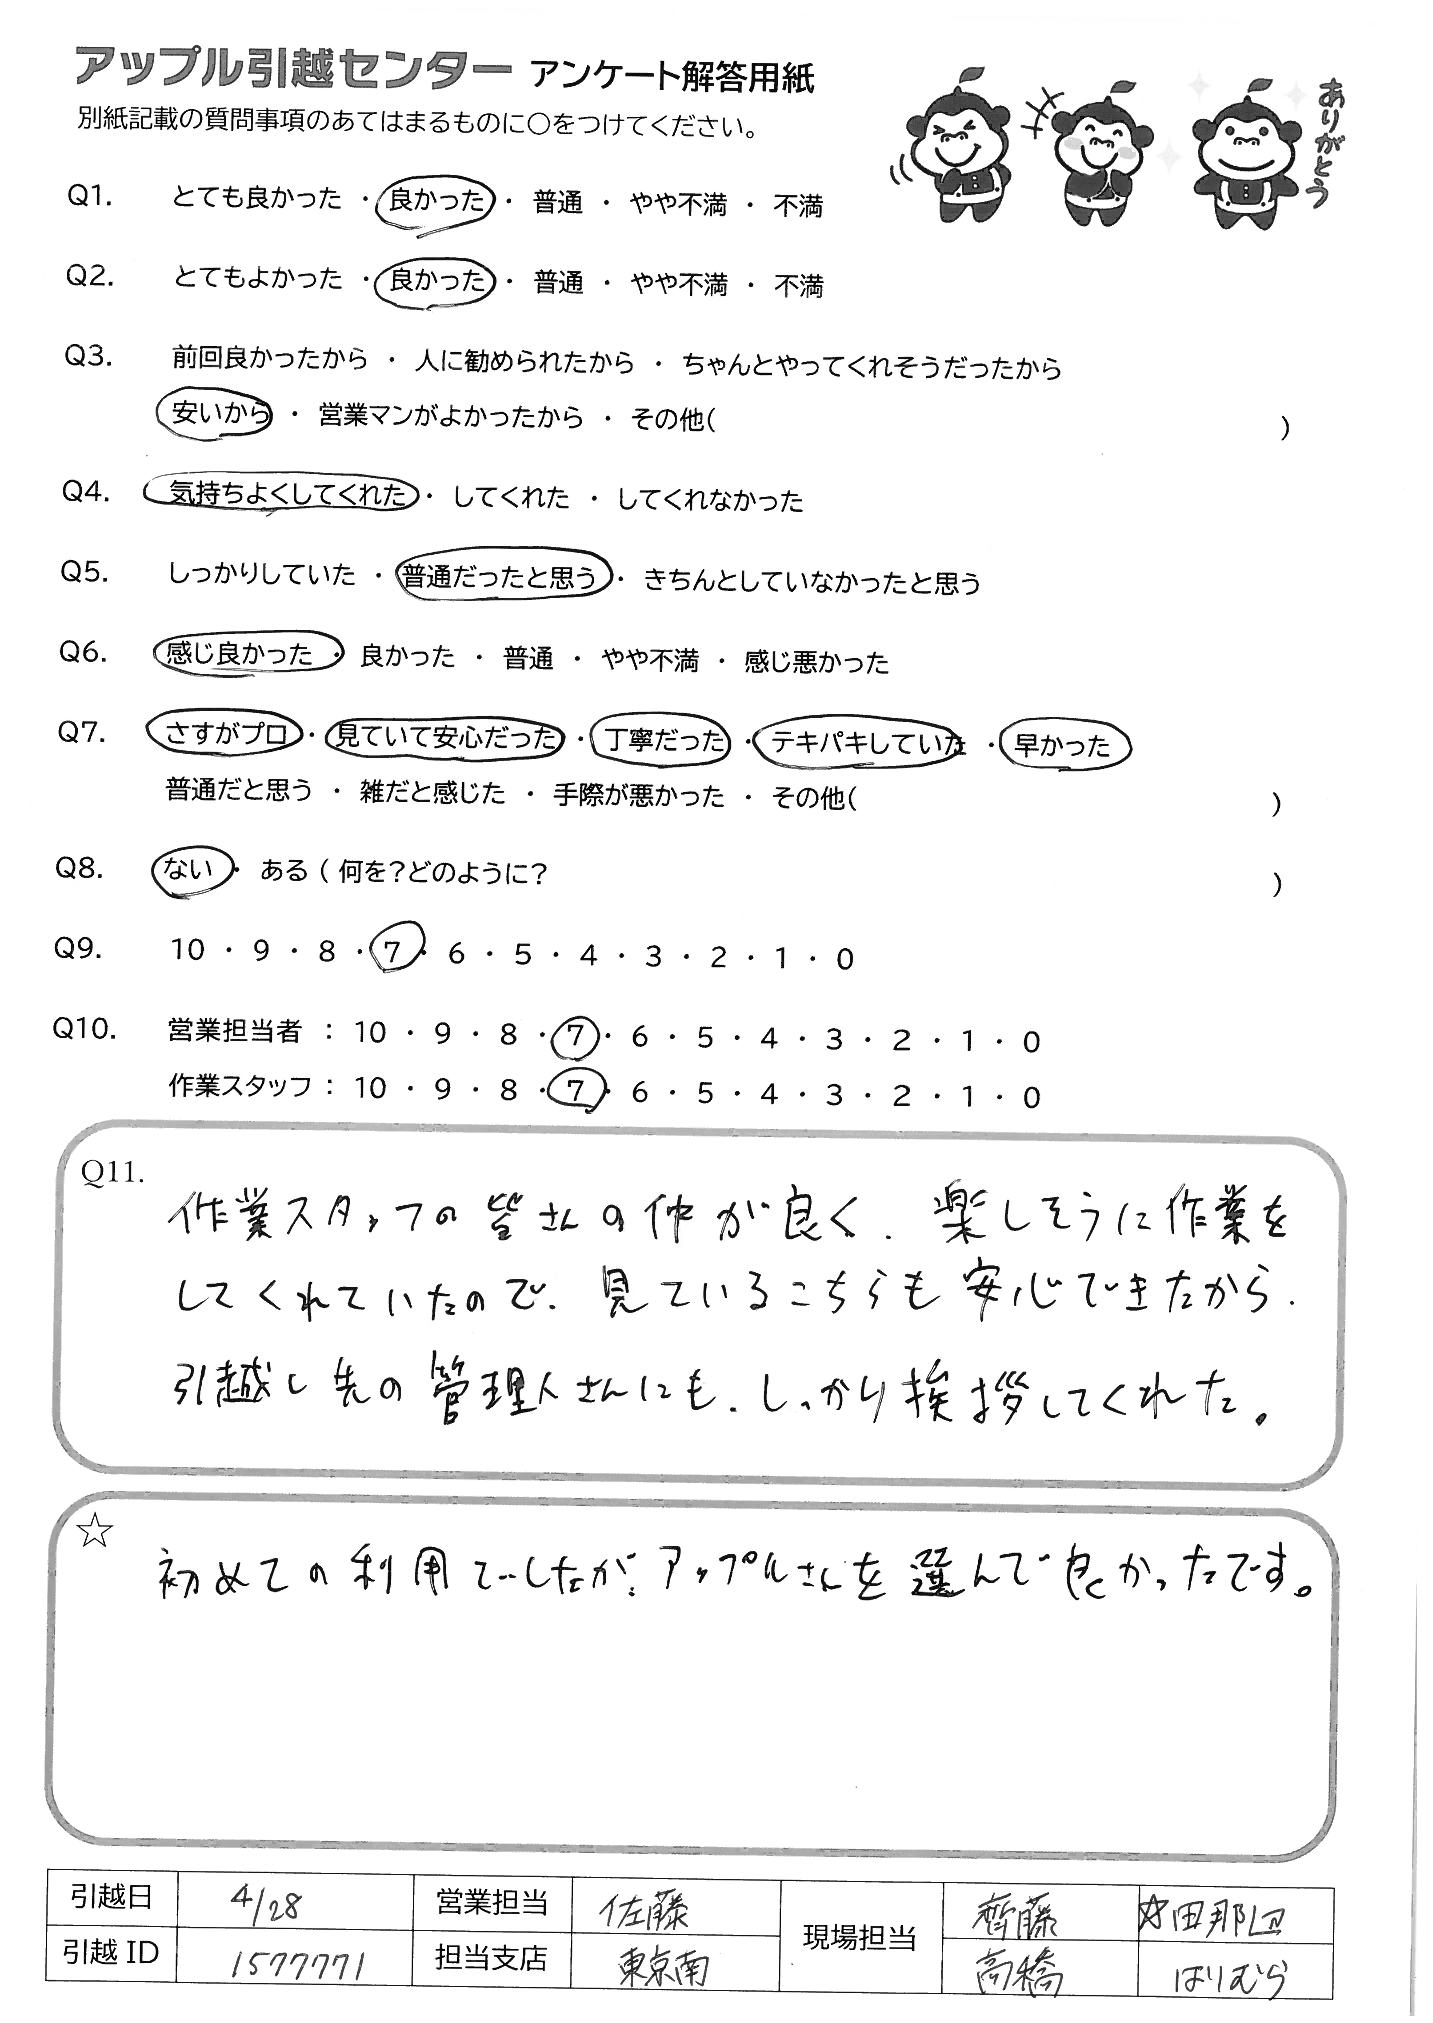 アップル引越センター アンケート解答用紙
別紙記載の質問事項のあてはまるものに○をつけてください。
ありがとう
Q1. とても良かった ・ 良かった ・ 普通 ・ やや不満 ・ 不満
Q2. とてもよかった ・ 良かった ・ 普通 ・ やや不満 ・ 不満
Q3. 前回良かったから ・ 人に勧められたから ・ ちゃんとやってくれそうだったから
安いから ・ 営業マンがよかったから ・ その他( )
Q4. 気持ちよくしてくれた ・ してくれた ・ してくれなかった
Q5. しっかりしていた ・ 普通だったと思う ・ きちんとしていなかったと思う
Q6. 感じ良かった ・ 良かった ・ 普通 ・ やや不満 ・ 感じ悪かった
Q7. さすがプロ ・ 見ていて安心だった ・ 丁寧だった ・ テキパキしていた ・ 早かった
普通だと思う ・ 雑だと感じた ・ 手際が悪かった ・ その他( )
Q8. ない ・ ある ( 何を?どのように? )
Q9. 10 ・ 9 ・ 8 ・ 7 ・ 6 ・ 5 ・ 4 ・ 3 ・ 2 ・ 1 ・ 0
Q10. 営業担当者 : 10 ・ 9 ・ 8 ・ 7 ・ 6 ・ 5 ・ 4 ・ 3 ・ 2 ・ 1 ・ 0
作業スタッフ : 10 ・ 9 ・ 8 ・ 7 ・ 6 ・ 5 ・ 4 ・ 3 ・ 2 ・ 1 ・ 0
Q11.
作業スタッフの皆さんの仲が良く、楽しそうに作業を
してくれていたので、見ているこちらも安心できたから、
引越し先の管理人さんにも、しっかり挨拶してくれた。
☆
初めての利用でしたが、アップルさんを選んで良かったです。
引越日 4/28 営業担当 佐藤 現場担当 齊藤 ☆田那辺
引越 ID 1577771 担当支店 東京南 高橋 はりむら